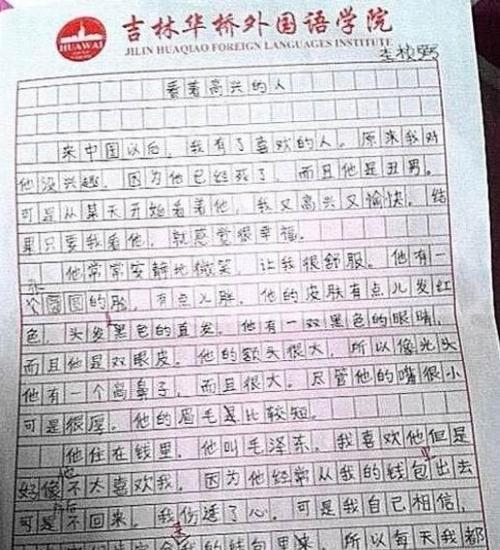 吉林华桥外国语学院
HUAWAI
JILIN HUAQIAO FOREIGN LANGUAGES INSTITUTE
看着高兴的人
来中国以后，我有了喜欢的人。原来我对
他没兴趣，因为他已经死了，而且他是丑男。
可是从某天开始看着他，我又高兴又愉快。结
果只要我看他，就感觉很幸福。
他常常安静地微笑，让我很舒服。他有一
张
个圆圆的脸，有点儿胖。他的皮肤有点儿发红
色，头发黑色的直发。他有一双黑色的眼睛，
而且他是双眼皮。他的额头很大，所以像光头
他有一个高鼻子，而且很大。尽管他的嘴很小
可是很厚。他的眉毛是比较短。
他住在钱里。他叫毛泽东。我喜欢他但是
好像他不太喜欢我。因为他经常从我的钱包出去
可是不回来。我伤透了心。可是我自己相信，
会我的钱包里来，所以每天我都